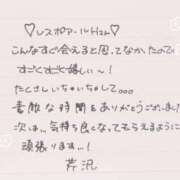 ♡レスポアール Hさん♡
こんなすぐ会えると思ってなかったので
すごくすごく嬉しい〜!
たくさんいちゃいちゃして。。。
素敵な時間をありがとうございました
次は、気持ち良くなってもらえるように
頑張ります...!
芹沢